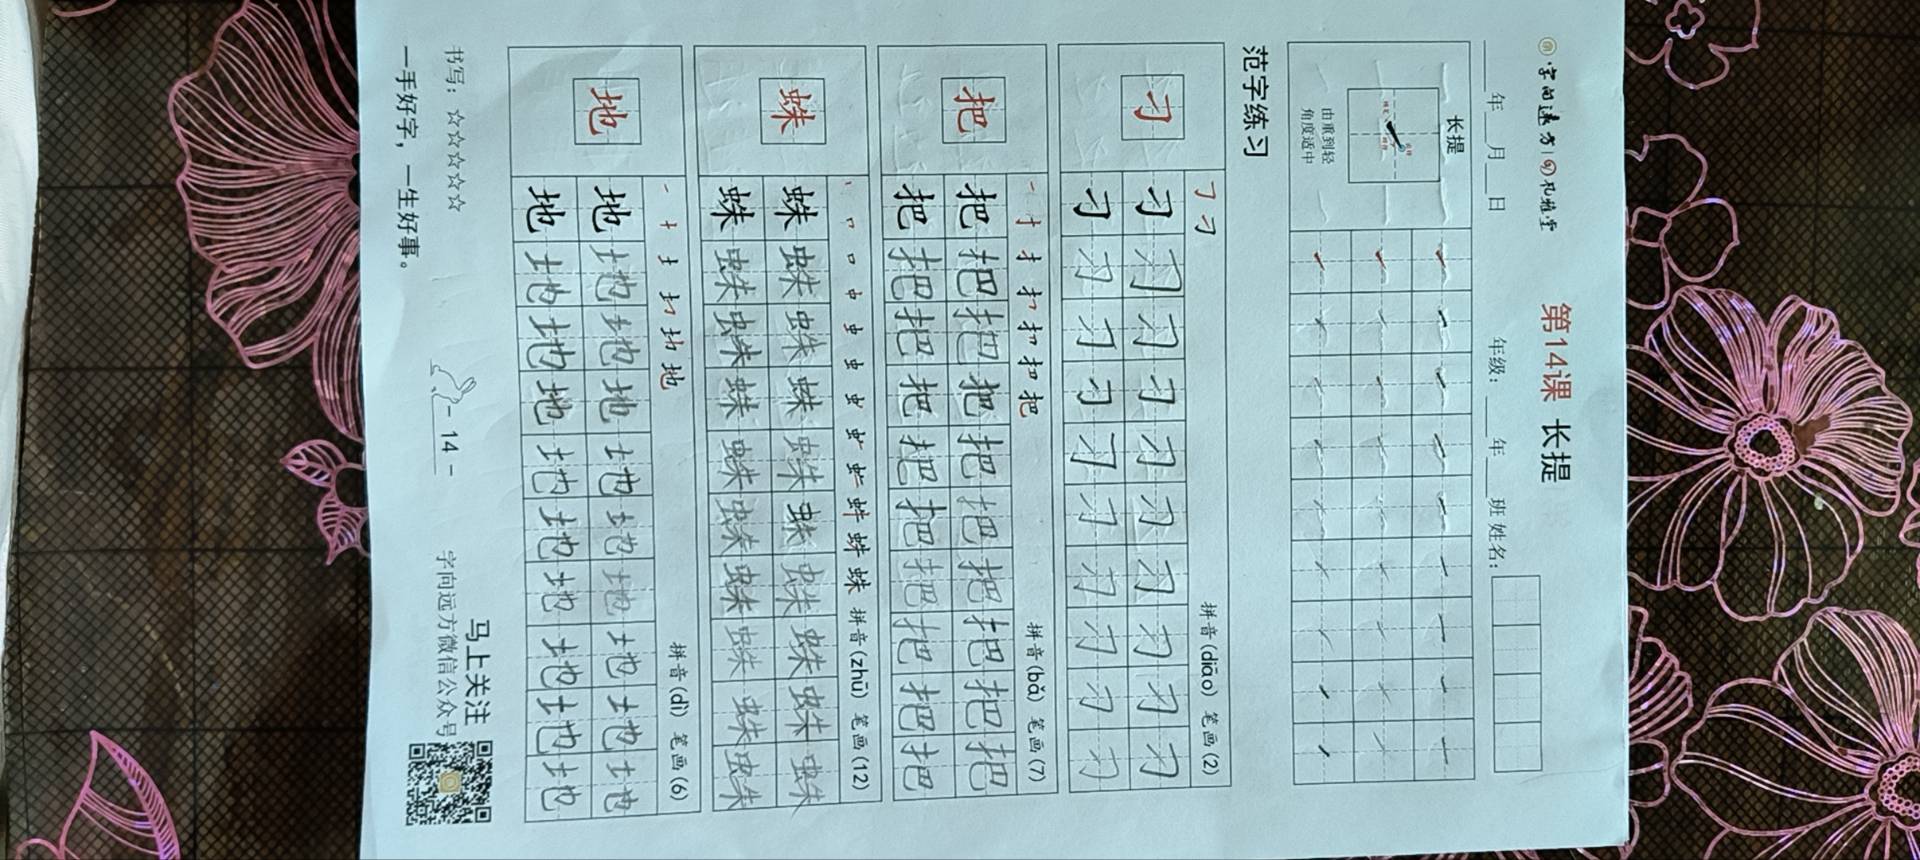 字向遠方
第14课 长提
年 月 日 年级： 年 班 姓名：
长提
由重到轻
角度适中
范字练习
刁
拼音(diāo) 笔画(2)
刁刁刁刁刁刁刁刁刁刁
刁刁刁刁刁刁刁刁刁刁
把
拼音(bǎ) 笔画(7)
把把把把把把把把把把
把把把把把把把把把把
蛛
拼音(zhū) 笔画(12)
蛛蛛蛛蛛蛛蛛蛛蛛蛛蛛
蛛蛛蛛蛛蛛蛛蛛蛛蛛蛛
地
拼音(dì) 笔画(6)
地地地地地地地地地地
地地地地地地地地地地
书写：☆☆☆☆☆
一手好字，一生好事。
- 14 -
马上关注
字向远方微信公众号